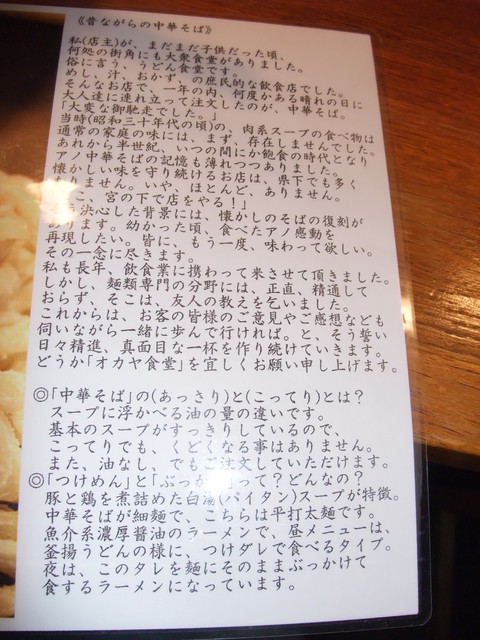 《昔ながらの中華そば》
私(店主)が、まだまだ子供だった頃、
何処の街角にも大衆食堂がありました。
俗に言う、うどん食堂です。
めし、汁、おかず、の庶民的な飲食店でした。
そんなお店で、一年の内、何度かある晴れの日に
大人達に連れ立って注文したのが、中華そば。
「大変な御馳走でした。」
当時(昭和三十年代の頃)の、肉系スープの食べ物は
通常の家庭の味には、まず、存在しませんでした。
あれから半世紀、いつの間にか飽食の時代となり
アノ中華そばの記憶も薄れつつありました。
懐かしい味を守り続けるお店は、県下でも多く
ありません。いや、ほとんど、ありません。
こ、宮の下で店をやる!」
決心した背景には、懐かしのそばの復刻が
ります。幼かった頃、食べたアノ感動を
再現したい。皆に、もう一度、味わって欲しい。
その一念に尽きます。
私も長年、飲食業に携わって来させて頂きました。
しかし、麺類専門の分野には、正直、精通して
おらず、そこは、友人の教えを乞いました。
これからは、お客の皆様のご意見やご感想なども
伺いながら一緒に歩んで行ければ。と、そう誓い
日々精進、真面目な一杯を作り続けていきます。
どうか「オカヤ食堂」を宜しくお願い申し上げます。
◎「中華そば」の(あっさり)と(こってり)とは?
スープに浮かべる油の量の違いです。
基本のスープがすっきりしているので、
こってりでも、くどくなる事はありません。
また、油なし、でもご注文していただけます。
◎「つけめん」と「ぶっか」って?どんなの?
豚と鶏を煮詰めた白湯(パイタン)スープが特徴。
中華そばが細麺で、こちらは平打太麺です。
魚介系濃厚醤油のラーメンで、昼メニューは、
釜揚うどんの様に、つけダレで食べるタイプ。
夜は、このタレを麺にそのままぶっかけて
食するラーメンになっています。